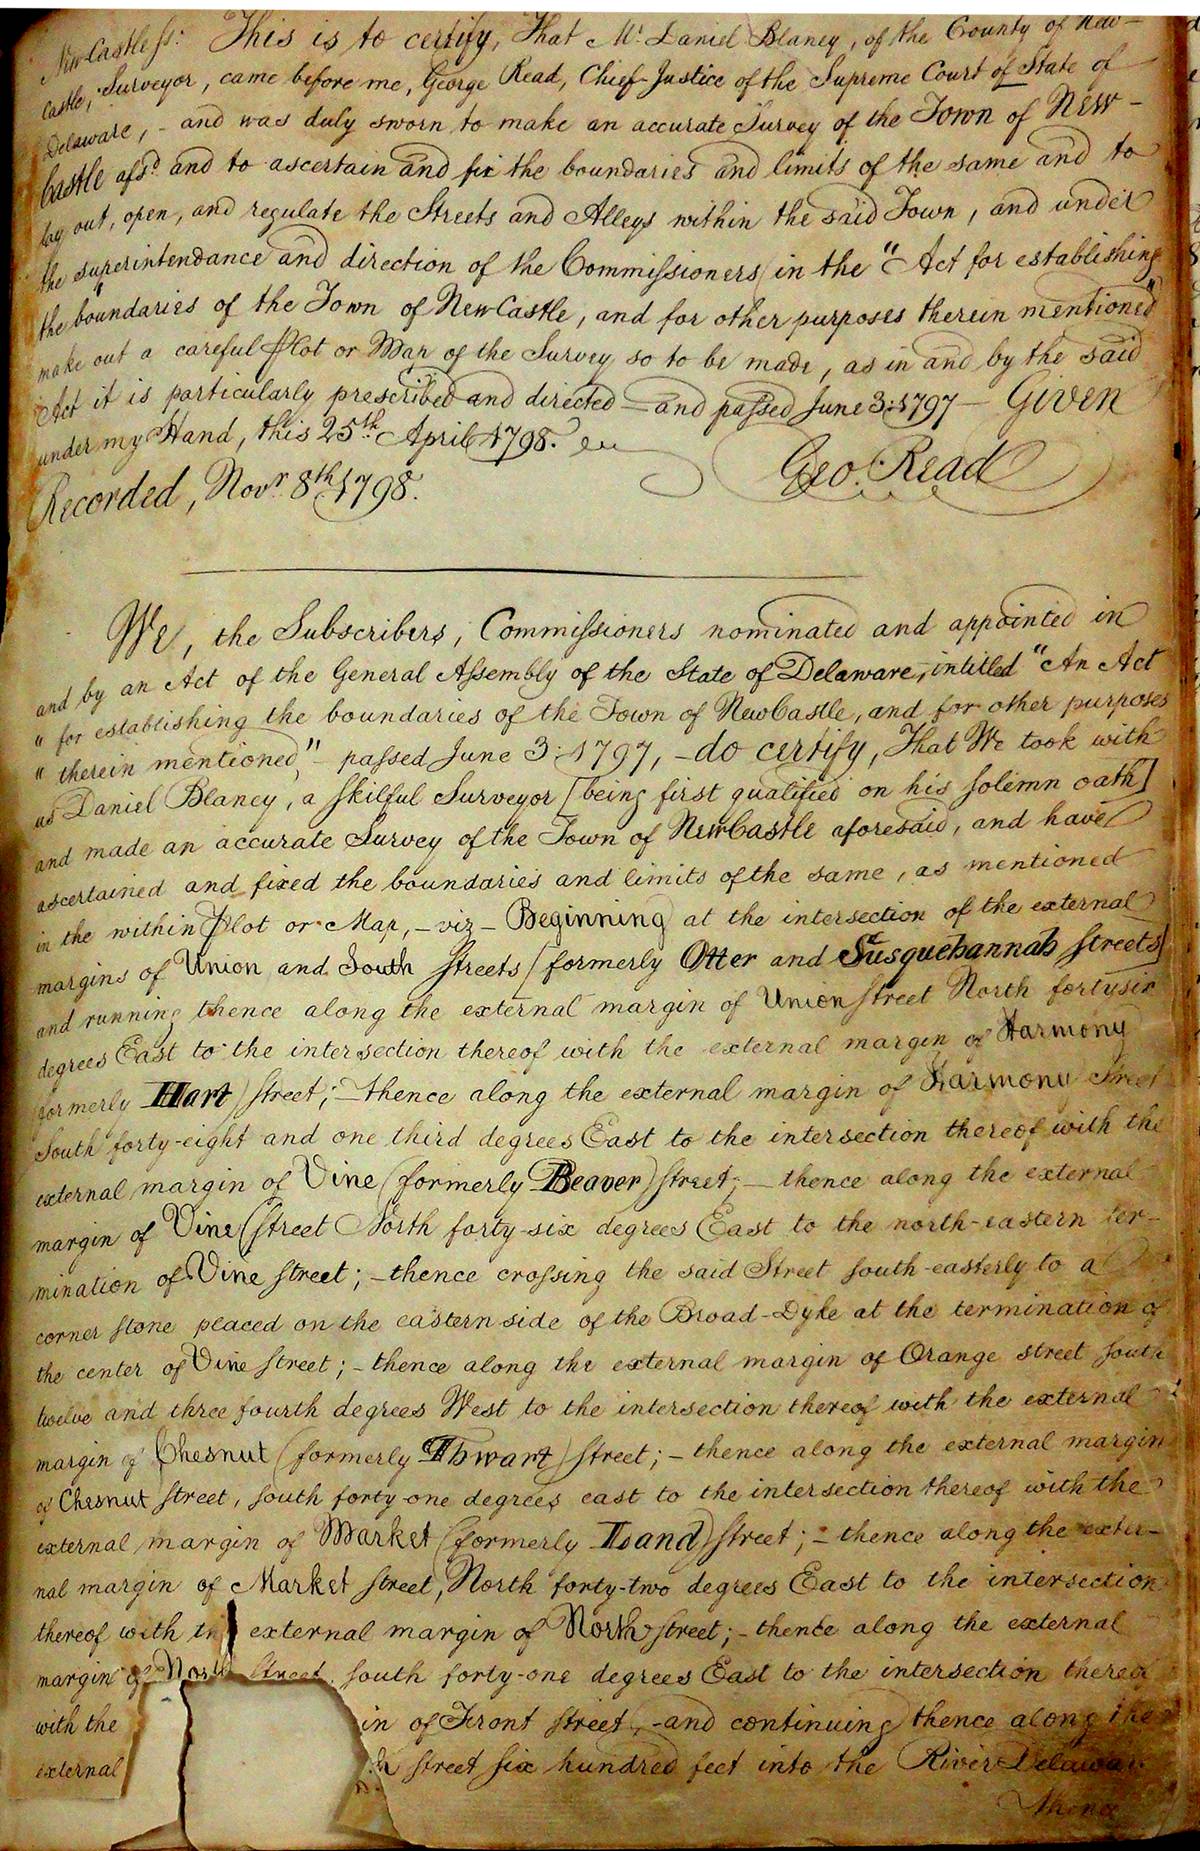 NewCastle ss: This is to certify, That Mr. Daniel Blaney, of the County of New-
Castle, Surveyor, came before me, George Read, Chief-Justice of the Supreme Court of State of
Delaware, - and was duly sworn to make an accurate Survey of the Town of New-
Castle afsd. and to ascertain and fix the boundaries and limits of the same and to
lay out, open, and regulate the Streets and Alleys within the said Town, and under
the superintendance and direction of the Commissioners in the "Act for establishing
the boundaries of the Town of NewCastle, and for other purposes therein mentioned"
make out a careful Plot or Map of the Survey so to be made, as in and by the said
Act it is particularly prescribed and directed - and passed June 3: 1797 - Given
under my Hand, this 25th. April 1798.
Geo. Read
Recorded, Novr. 8th 1798.
We, the Subscribers, Commissioners nominated and appointed in
and by an Act of the General Assembly of the State of Delaware, intitled "An Act
" for establishing the boundaries of the Town of NewCastle, and for other purposes
" therein mentioned," - passed June 3: 1797, - do certify, That We took with
us Daniel Blaney, a skilful Surveyor [being first qualified on his solemn oath]
and made an accurate Survey of the Town of NewCastle aforesaid, and have
ascertained and fixed the boundaries and limits of the same, as mentioned
in the within Plot or Map, - viz - Beginning at the intersection of the external
margins of Union and South Streets [formerly Otter and Susquehannah Streets]
and running thence along the external margin of Union Street North forty six
degrees East to the intersection thereof with the external margin of Harmony
(formerly Hart) street; - thence along the external margin of Harmony Street
South forty-eight and one third degrees East to the intersection thereof with the
external margin of Vine (formerly Beaver) street; - thence along the external
margin of Vine Street North forty-six degrees East to the north-eastern ter-
mination of Vine street; - thence crossing the said Street south-easterly to a
corner stone placed on the eastern side of the Broad-Dyke at the termination of
the center of Vine street; - thence along the external margin of Orange street south
twelve and three fourth degrees West to the intersection thereof with the external
margin of Chesnut (formerly Thwart) street; - thence along the external margin
of Chesnut street, south forty-one degrees east to the intersection thereof with the
external margin of Market (formerly Land) street; - thence along the exter-
nal margin of Market street, North forty-two degrees East to the intersection
thereof with th external margin of North street; - thence along the external
margin of North Street, south forty-one degrees East to the intersection thereof
with the in of Front street, - and continuing thence along the
external h street six hundred feet into the River Delaware
thence